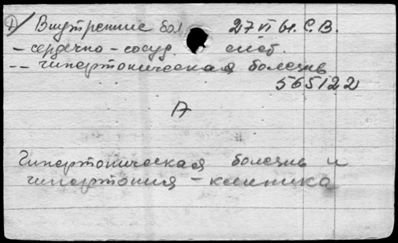 А/ Внутренние бол. 27 VI 61. С.В.
- сердечно-сосуд.
-- гипертоническая болезнь
565122
А
Гипертоническая болезнь и
гипертония - клиника